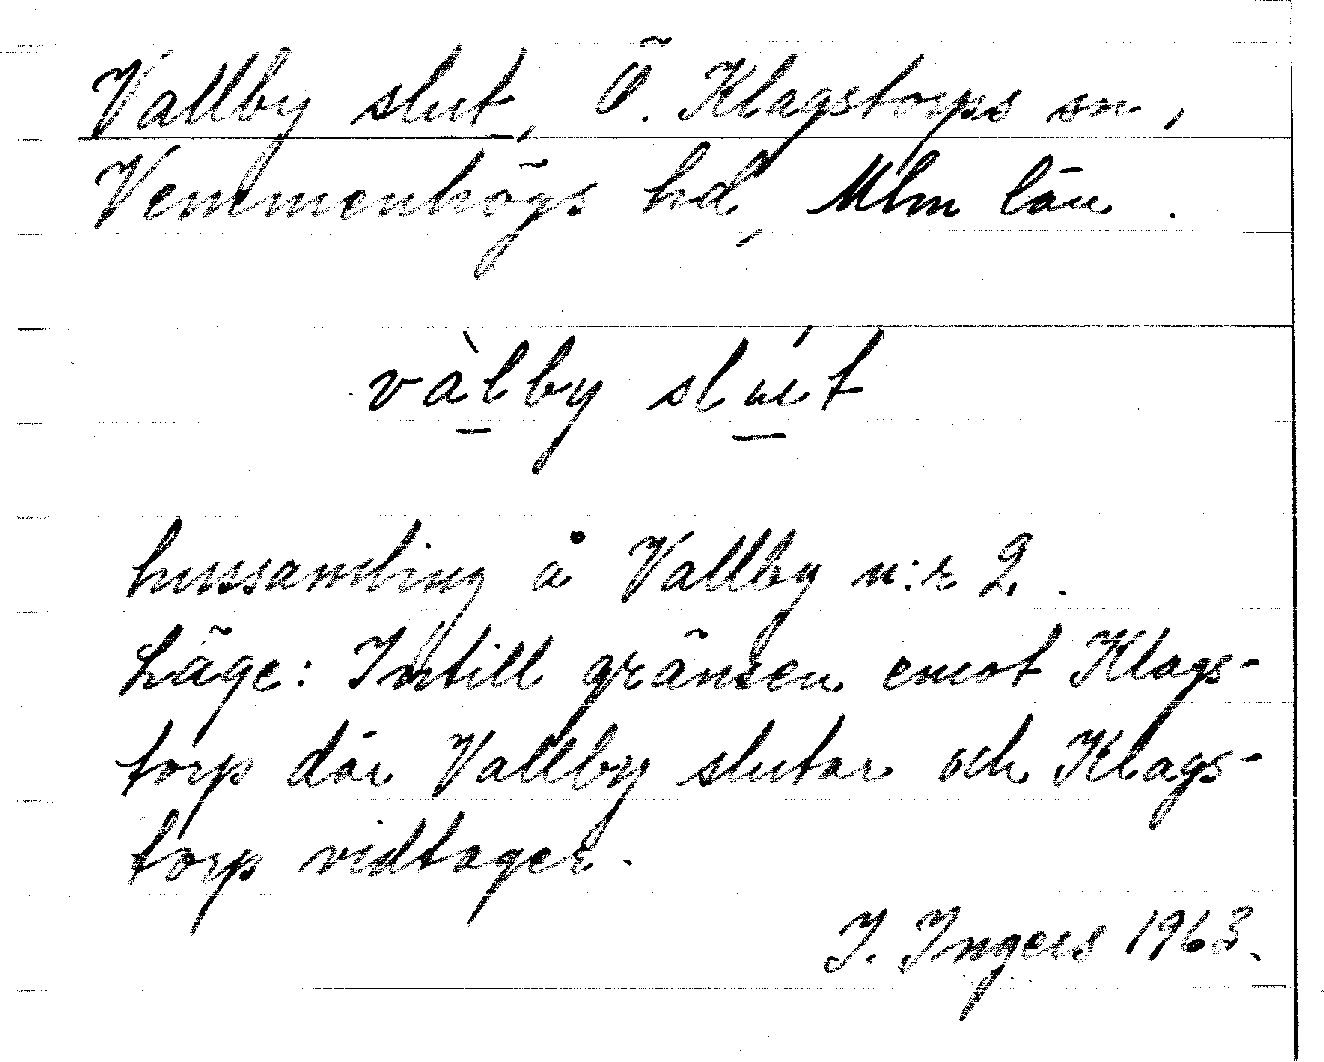 Vallby slut, Ö. Klagstorps sn,
Vemmenhögs hd, Mlm län.
vàlby slút
hussamling å Vallby n:r 2.
Läge: Intill gränsen emot Klags-
torp där Vallby slutar och Klags-
torp vidtager.
I. Ingers 1963.